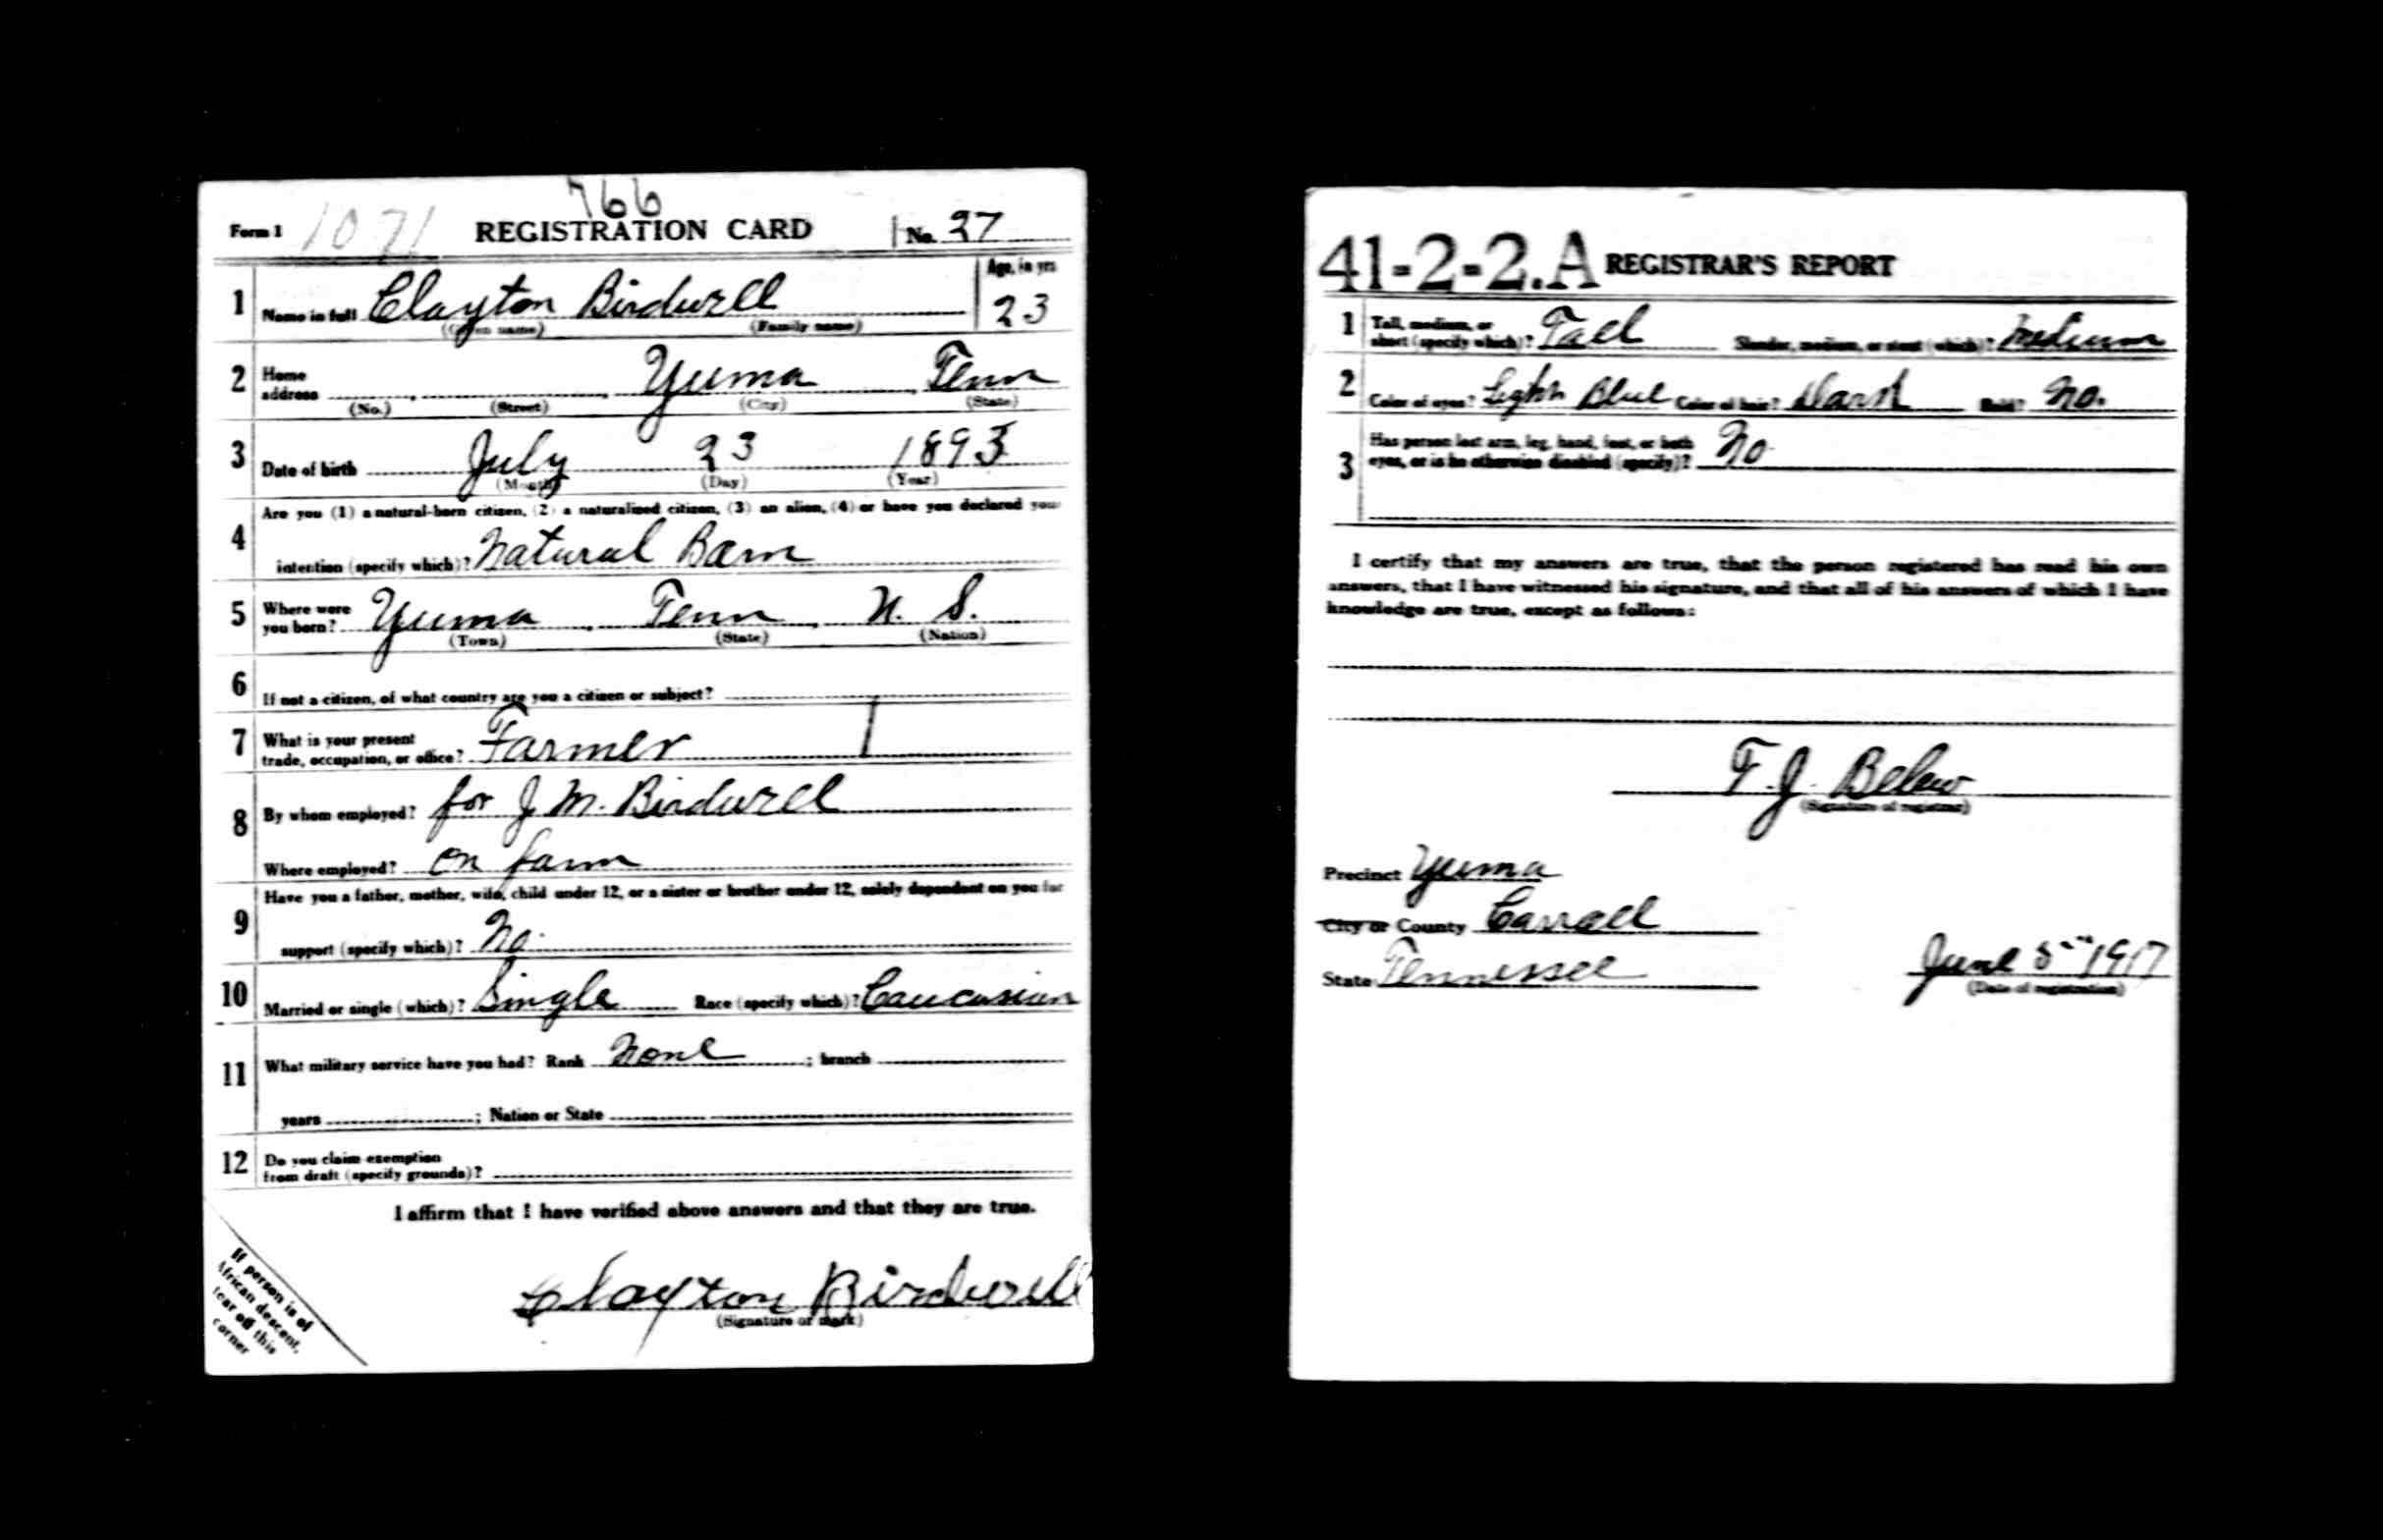 766
Form 1 1071 REGISTRATION CARD No. 37
1 Name in full Clayton Birdwell Age, in yrs
(Given name) (Family name) 23
2 Home address Yuma Tenn
(No.) (Street) (City) (State)
3 Date of birth July 23 1893
(Month) (Day) (Year)
Are you (1) a natural-born citizen, (2) a naturalized citizen, (3) an alien, (4) or have you declared your
4 intention (specify which)? Natural Born
5 Where were you born? Yuma Tenn U. S.
(Town) (State) (Nation)
6 If not a citizen, of what country are you a citizen or subject?
7 What is your present
trade, occupation, or office? Farmer
8 By whom employed? for J M. Birdwell
Where employed? on farm
Have you a father, mother, wife, child under 12, or a sister or brother under 12, solely dependent on you for
9 support (specify which)? No.
10 Married or single (which)? Single Race (specify which)? Caucasian
11 What military service have you had? Rank None ; branch
years ; Nation or State
12 Do you claim exemption
from draft (specify grounds)?
I affirm that I have verified above answers and that they are true.
Clayton Birdwell
(Signature or mark)
If person is of
African descent,
tear off this
corner
41-2-2.A REGISTRAR'S REPORT
1 Tall, medium, or
short (specify which)? Tall Slender, medium, or stout (which)? Medium
2 Color of eyes? Light Blue Color of hair? Dark Bald? No.
3 Has person lost arm, leg, hand, foot, or both
eyes, or is he otherwise disabled (specify)? No
I certify that my answers are true, that the person registered has read his own
answers, that I have witnessed his signature, and that all of his answers of which I have
knowledge are true, except as follows:
T. J. Belew
(Signature of registrar)
Precinct Yuma
City or County Carroll
State Tennessee June 5 1917
(Date of registration)